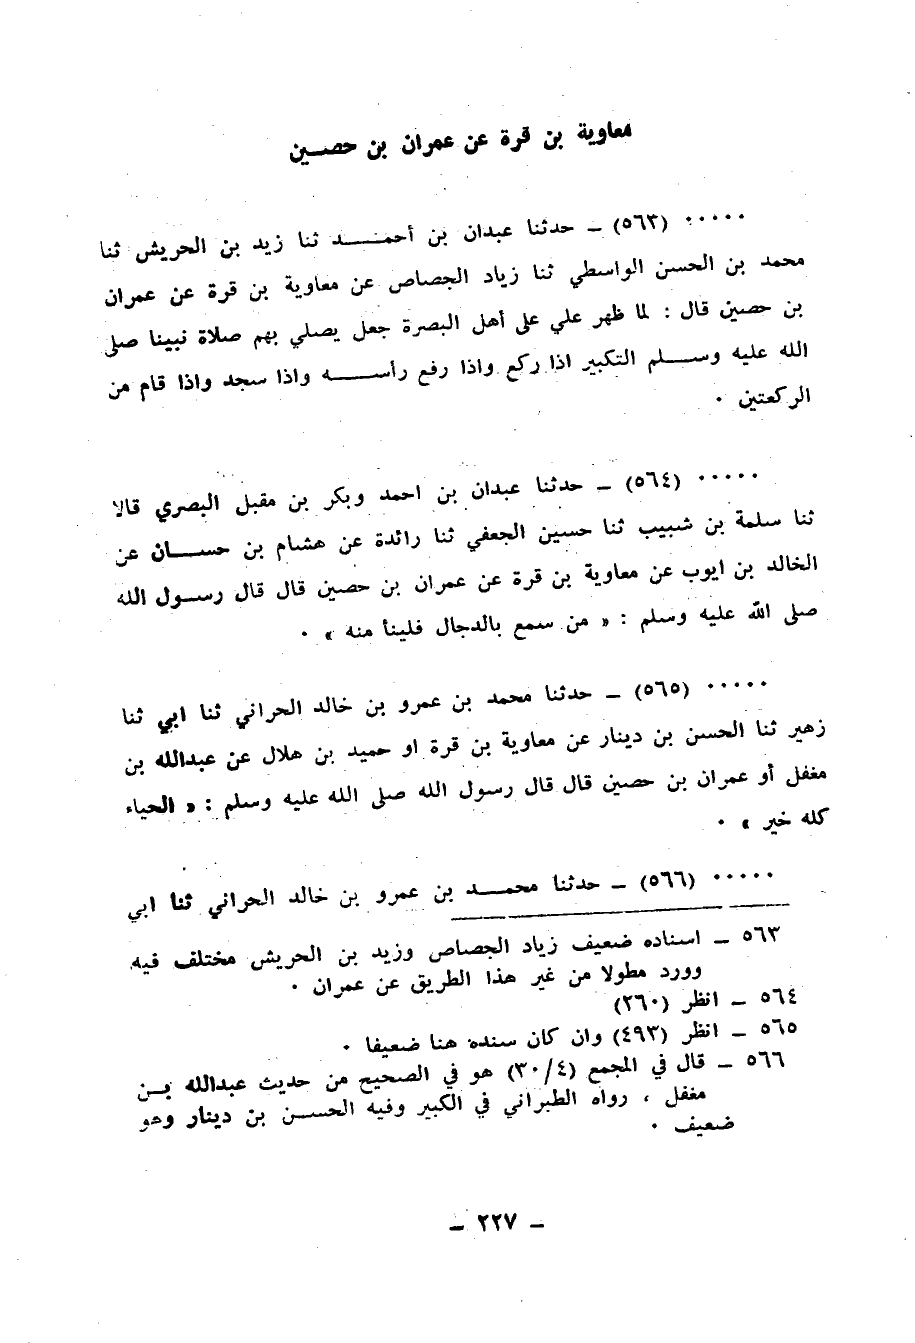 معاوية بن قرة عن عمران بن حصــين
٠٠٠٠٠ (٥٦٣) ــ حدثنا عبدان بن أحمــــد ثنا زيد بن الحريش ثنا
محمد بن الحسن الواسطي ثنا زياد الجصاص عن معاوية بن قرة عن عمران
بن حصين قال : لما ظهر علي على أهل البصرة جعل يصلي بهم صلاة نبينا صلى
الله عليه وســـلم التكبير اذا ركع واذا رفع رأســـــه واذا سجد واذا قام من
الركعتين ٠
٠٠٠٠٠ (٥٦٤) ــ حدثنا عبدان بن احمد وبكر بن مقبل البصري قالا
ثنا سلمة بن شبيب ثنا حسين الجعفي ثنا رائدة عن هشام بن حســـان عن
الخالد بن ايوب عن معاوية بن قرة عن عمران بن حصين قال قال رســول الله
صلى الله عليه وسلم : « من سمع بالدجال فلينأ منه » ٠
٠٠٠٠٠ (٥٦٥) ــ حدثنا محمد بن عمرو بن خالد الحراني ثنا ابي ثنا
زهير ثنا الحسن بن دينار عن معاوية بن قرة او حميد بن هلال عن عبدالله بن
مغفل أو عمران بن حصين قال قال رسول الله صلى الله عليه وسلم : « الحياء
كله خير » ٠
٠٠٠٠٠ (٥٦٦) ــ حدثنا محمـــد بن عمرو بن خالد الحراني ثنا ابي
٥٦٣ ــ اسناده ضعيف زياد الجصاص وزيد بن الحريش مختلف فيه
وورد مطولا من غير هذا الطريق عن عمران ٠
٥٦٤ ــ انظر (٢٦٠)
٥٦٥ ــ انظر (٤٩٣) وان كان سنده هنا ضعيفا ٠
٥٦٦ ــ قال في المجمع (٣٠/٤) هو في الصحيح من حديث عبدالله بــن
مغفل ، رواه الطبراني في الكبير وفيه الحســـن بن دينار وهو
ضعيف ٠
ــ ٢٢٧ ــ